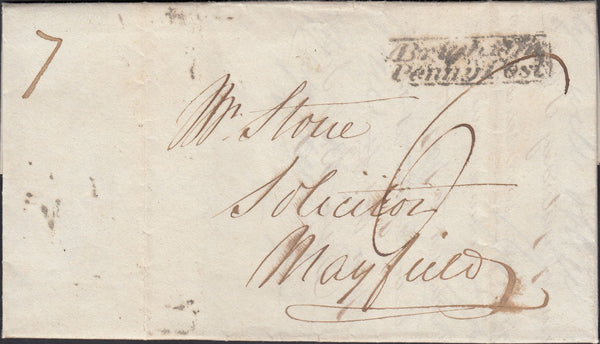 7
Penny Post
6
Mr. Stone
Solicitor
Mayfield